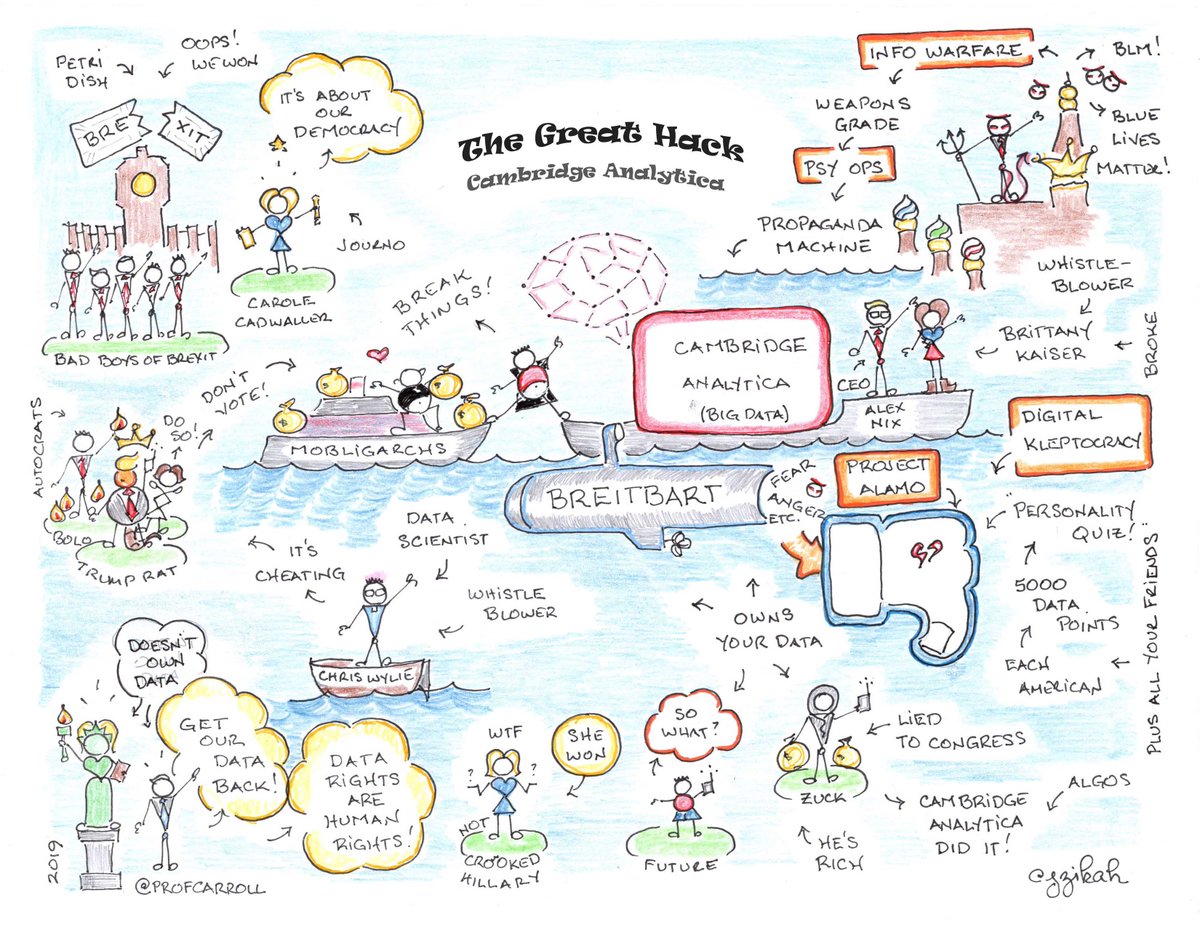 The Great Hack
Cambridge Analytica
PETRI
DISH
OOPS!
WE WON
BRE
XIT
BAD BOYS OF BREXIT
IT'S ABOUT
OUR
DEMOCRACY
JOURNO
CAROLE
CADWALLER
INFO WARFARE
BLM!
BLUE
LIVES
MATTER!
WEAPONS
GRADE
PSY OPS
PROPAGANDA
MACHINE
WHISTLE-
BLOWER
BRITTANY
KAISER
BROKE
BREAK
THINGS!
DON'T
VOTE!
DO
SO!
MOBLIGARCHS
CAMBRIDGE
ANALYTICA
(BIG DATA)
CEO
ALEX
NIX
AUTOCRATS
BOLO
TRUMP RAT
BREITBART
FEAR
ANGER
ETC.
PROJECT
ALAMO
DIGITAL
KLEPTOCRACY
"PERSONALITY
QUIZ!
5000
DATA
POINTS
EACH
AMERICAN
PLUS ALL YOUR FRIENDS"
DATA
SCIENTIST
IT'S
CHEATING
WHISTLE
BLOWER
CHRIS WYLIE
OWNS
YOUR DATA
DOESN'T
OWN
DATA
GET
OUR
DATA
BACK!
DATA
RIGHTS
ARE
HUMAN
RIGHTS!
2019
@PROFCARROLL
WTF
? ?
SHE
WON
NOT
CROOKED
HILLARY
SO
WHAT?
FUTURE
ZUCK
LIED
TO CONGRESS
ALGOS
CAMBRIDGE
ANALYTICA
DID IT!
HE'S
RICH
cgzikah